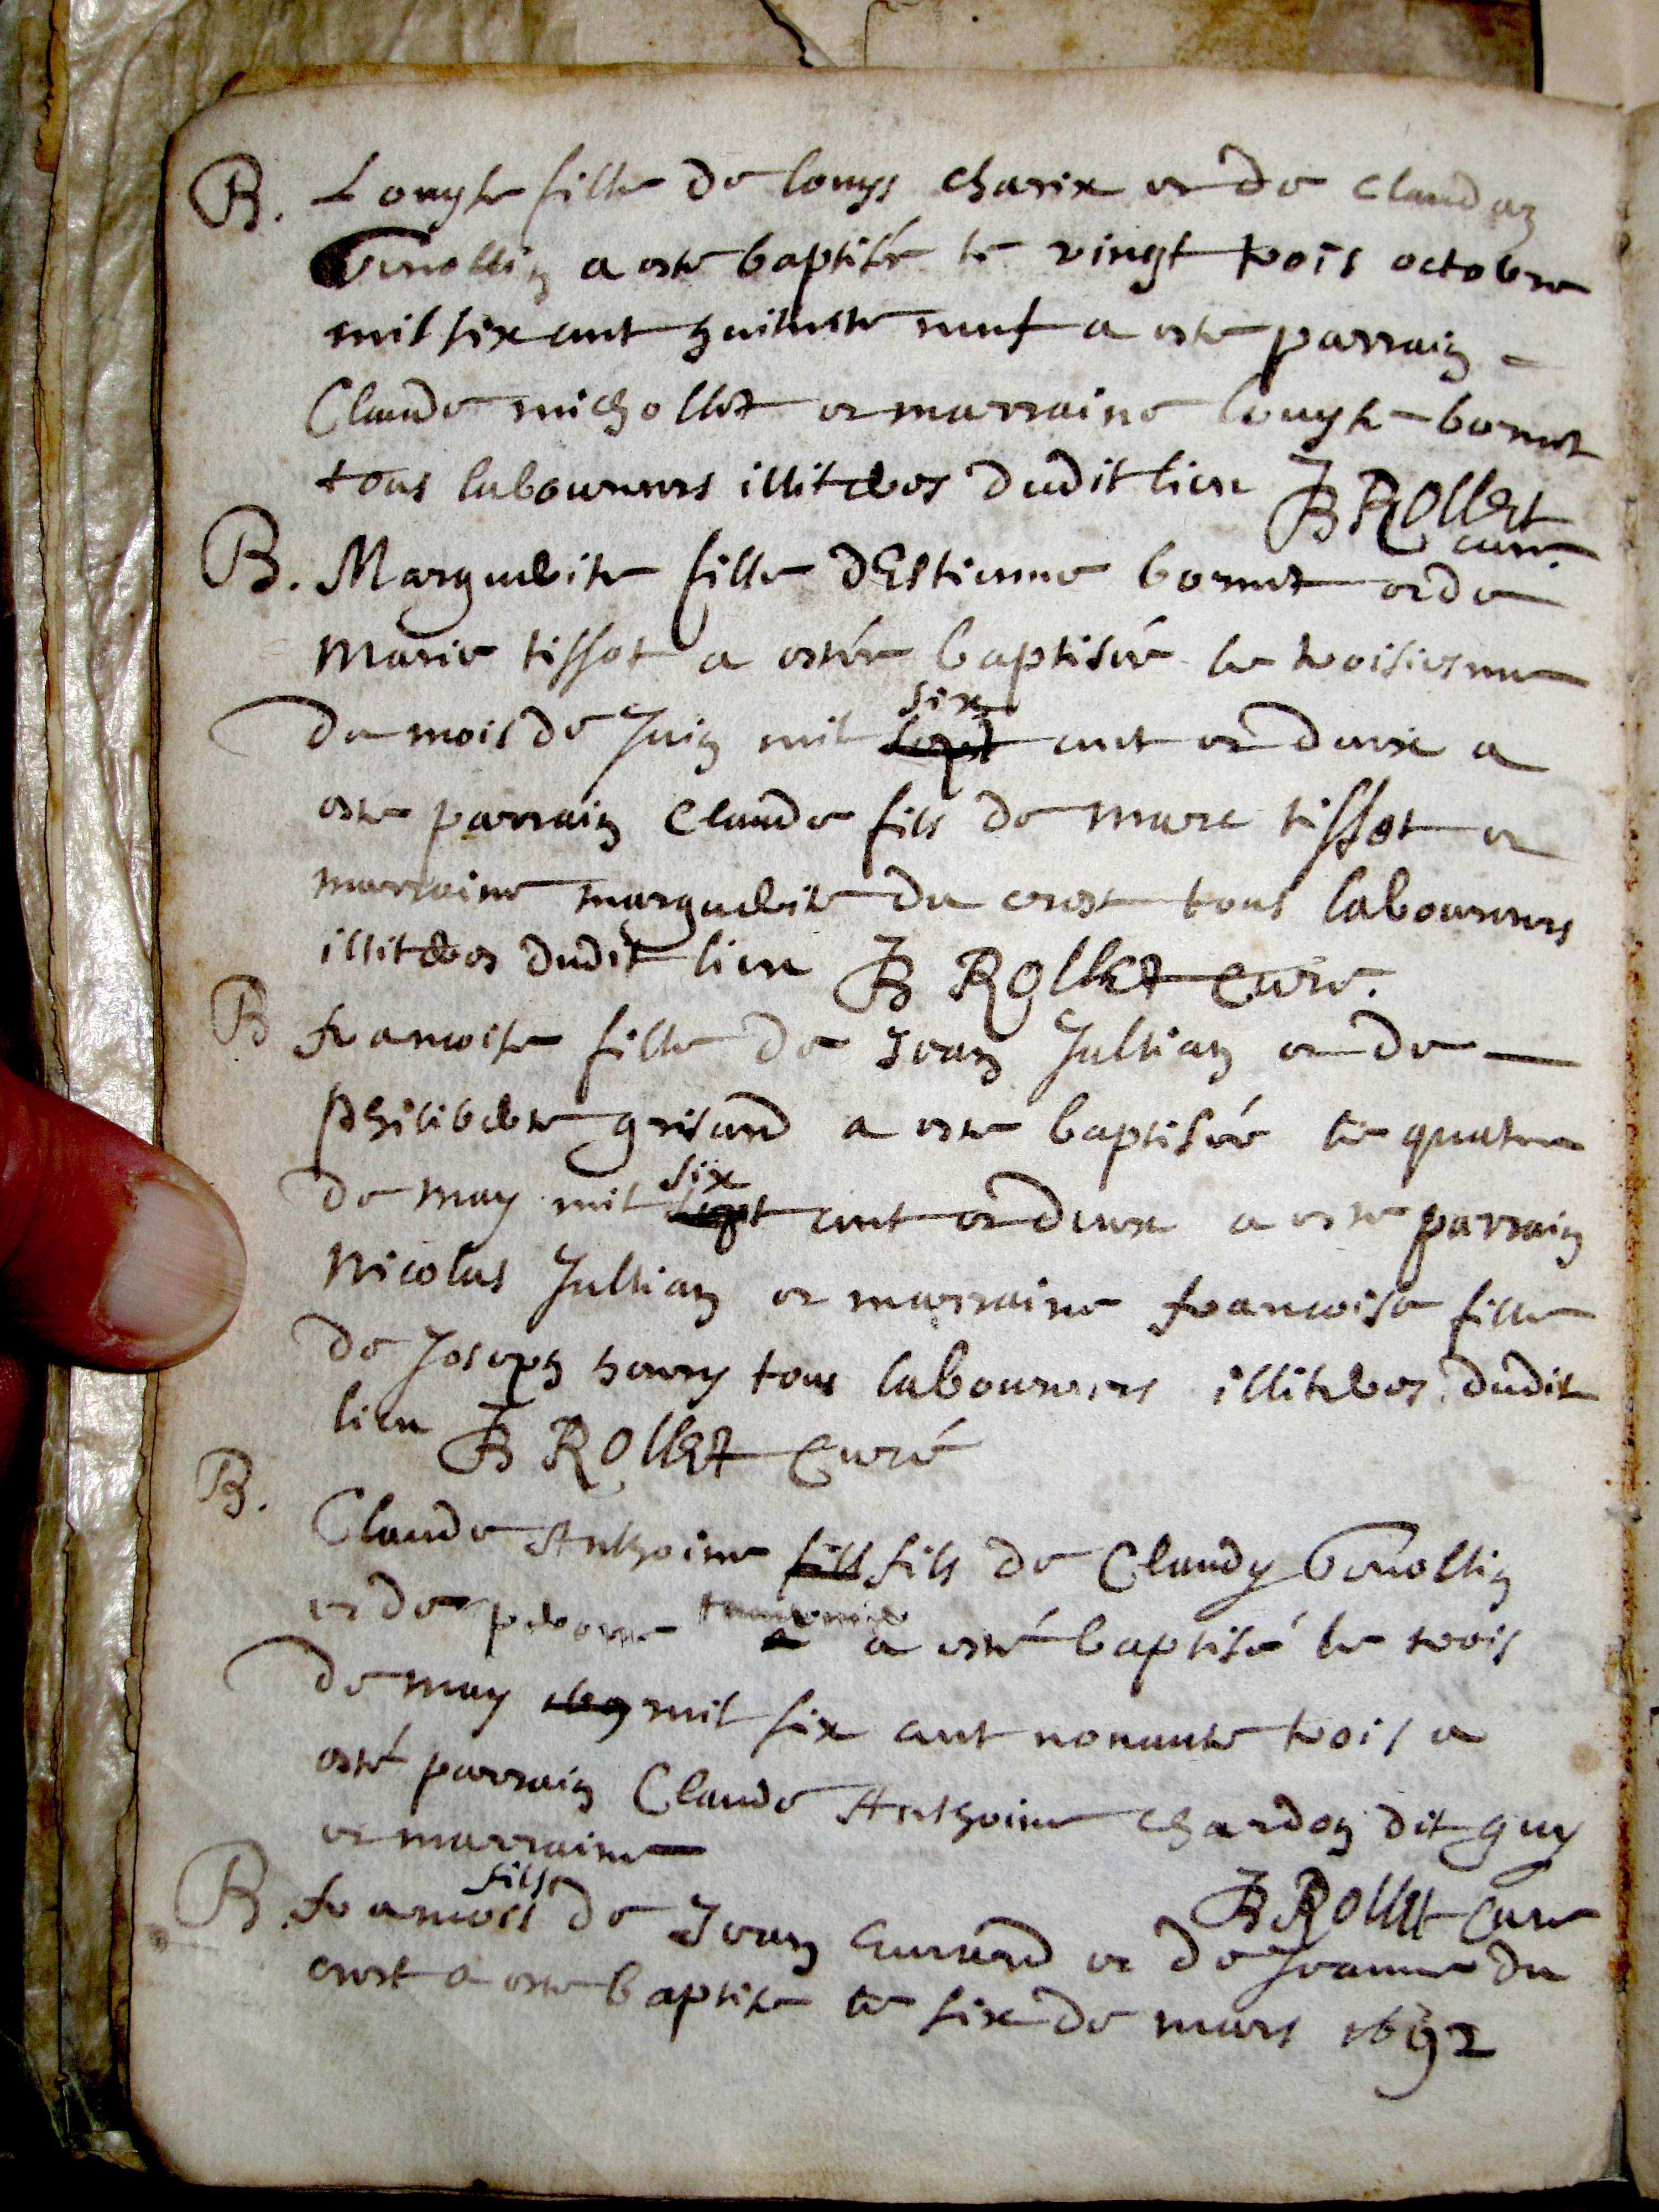 B. Louyse fille de louys charix et de claudaz
Benoîtin a este baptisée le vingt trois octobre
mil six cent huitante neuf a este parrain
Claude michollet et marraine louyse bornet
tous laboureurs illiteres dudit lieu B Rollet
curé
B. Marguerite fille dEstienne bornet et de
Marie tissot a estée baptisée le troisiesme
du mois de Juin mil sept six cent et deux a
este parrain Claude fils de marc tissot et
marraine marguerite du crest tous laboureurs
illiteres dudit lieu B Rollet Curé.
B francoise fille de Jean Jullian et de
philiberte grisard a este baptisée le quatre
de may mil sept six cent et deux a este parrain
Nicolas Jullian et marraine francoise fille
de Joseph henry tous laboureurs illiteres dudit
lieu B Rollet Curé
B. Claude Anthoine fill fils de Claudy
et de pierrone a a esté baptisé le trois
de may mil six cent nonante trois a
esté parrain Claude Anthoine chardon dit guy
et marraine
B Rollet Curé
B. francois fils de Jean et de Jeanne du
crest a este baptise le six de mars 1692